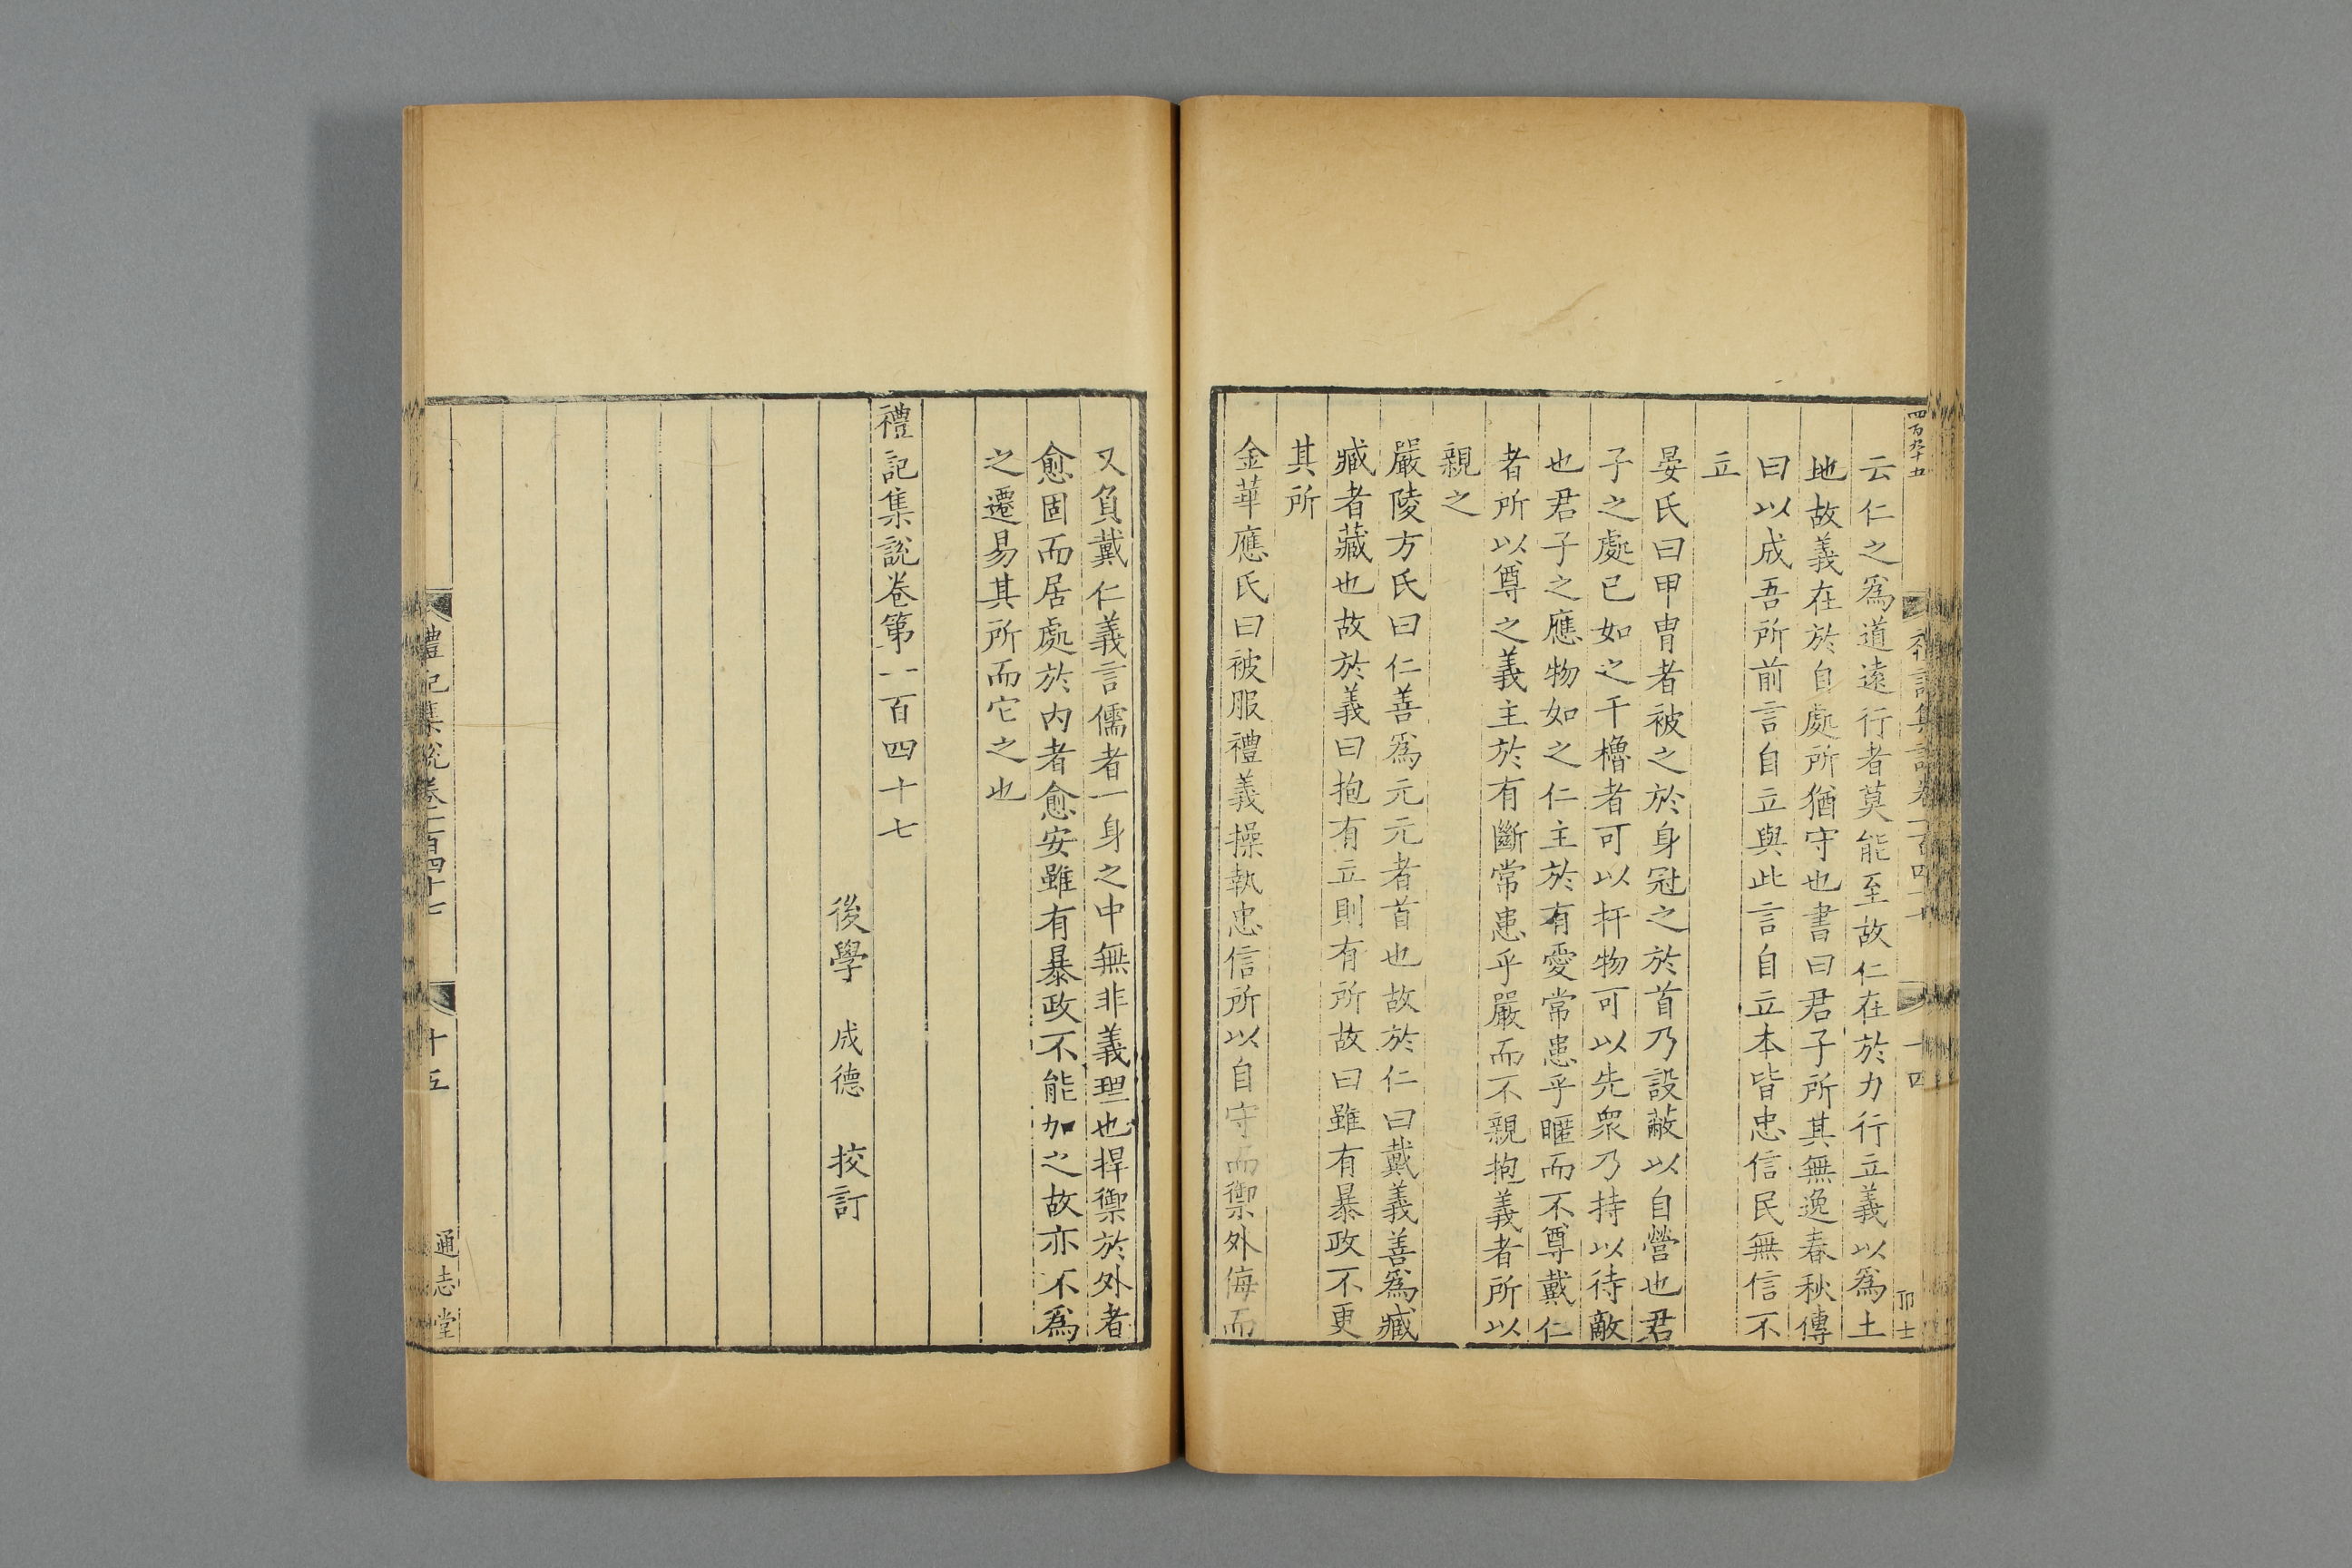 四百九十五
禮記集說卷一百四十七
十四
云仁之爲道遠行者莫能至故仁在於力行立義以爲土
地故義在於自處所猶守也書曰君子所其無逸春秋傳
曰以成吾所前言自立與此言自立本皆忠信民無信不
立
晏氏曰甲冑者被之於身冠之於首乃設蔽以自營也君
子之處已如之干櫓者可以扞物可以先衆乃持以待敵
也君子之應物如之仁主於有愛常患乎暱而不尊戴仁
者所以尊之義主於有斷常患乎嚴而不親抱義者所以
親之
嚴陵方氏曰仁善爲元元者首也故於仁曰戴義善爲臧
臧者藏也故於義曰抱有立則有所故曰雖有暴政不更
其所
金華應氏曰被服禮義操執忠信所以自守而禦外侮而
又負戴仁義言儒者一身之中無非義理也捍禦於外者
愈固而居處於内者愈安雖有暴政不能加之故亦不爲
之遷易其所而它之也
禮記集說卷第一百四十七
後學 成德 挍訂
禮記集說卷一百四十七
十五
通志堂